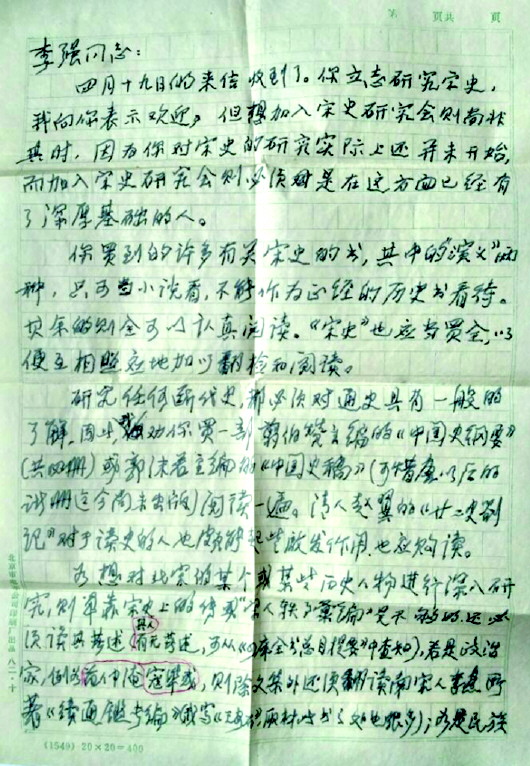 第 页共 页
李强同志：
四月十九日的来信收到了。你立志研究宋史，
我向你表示欢迎。但想加入宋史研究会则尚非
其时，因为你对宋史的研究实际上还并未开始，
而加入宋史研究会则必须是在这方面已经有
了深厚基础的人。
你买到的许多有关宋史的书，其中的“演义”两
种，只可当小说看，不能作为正经的历史书看待。
其余的则全可以认真阅读。《宋史》也应当买全，以
便互相照应地加以翻检和阅读。
研究任何断代史，都必须对通史具有一般的
了解，因此劝你买一部翦伯赞主编的《中国史纲要》
（共四册）或郭沫若主编的《中国史稿》（可惜唐以后的
诸册迄今尚未出版）阅读一遍。清人赵翼的《廿二史劄
记》对于读史的人也能起些启发作用也应购读。
若想对北宋的某个或某些历史人物进行深入研
究，则单靠宋史上的传或宋人轶事汇编是不够的，还必
须读其著述（其人有无著述，可从《四库全书总目提要》中查知），若是政治
家，例如范仲淹寇准或，则除文集外还须翻读南宋人李焘所
著《续通鉴长编》（我写 取材此书之处也很多）；若是民族
北京 公司印刷厂出品 八二·十
(1549) 20×20=400